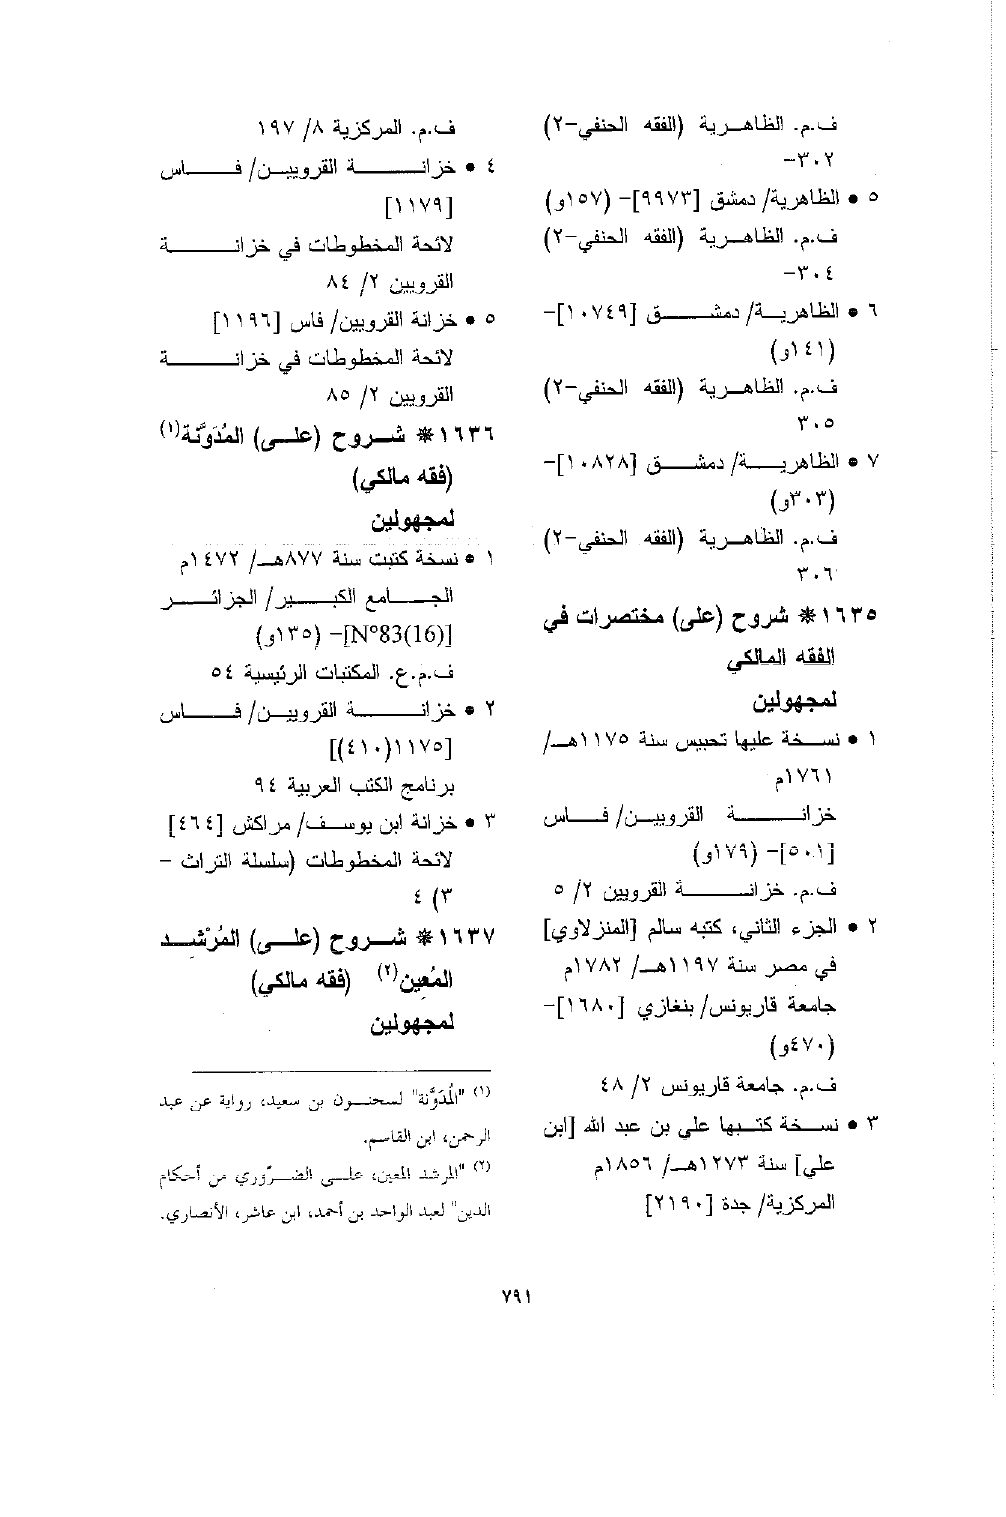 ف.م. الظاهرية (الفقه الحنفي-٢)
٣٠٢-
٥ • الظاهرية/ دمشق [٩٩٧٣]- (١٥٧و)
ف.م. الظاهرية (الفقه الحنفي-٢)
٣٠٤-
٦ • الظاهرية/ دمشق [١٠٧٤٩]-
(١٤١و)
ف.م. الظاهرية (الفقه الحنفي-٢)
٣٠٥
٧ • الظاهرية/ دمشق [١٠٨٢٨]-
(٣٠٣و)
ف.م. الظاهرية (الفقه الحنفي-٢)
٣٠٦
١٦٣٥* شروح (على) مختصرات في
الفقه المالكي
لمجهولين
١ • نسخة عليها تحبيس سنة ١١٧٥هـ/
١٧٦١م
خزانة القرويين/ فاس
[٥٠١]- (١٧٩و)
ف.م. خزانة القرويين ٢/ ٥
٢ • الجزء الثاني، كتبه سالم [المنزلاوي]
في مصر سنة ١١٩٧هـ/ ١٧٨٢م
جامعة قاريونس/ بنغازي [١٦٨٠]-
(٤٧٠و)
ف.م. جامعة قاريونس ٢/ ٤٨
٣ • نسخة كتبها علي بن عبد الله [ابن
علي] سنة ١٢٧٣هـ/ ١٨٥٦م
المركزية/ جدة [٢١٩٠]
ف.م. المركزية ٨/ ١٩٧
٤ • خزانة القرويين/ فاس
[١١٧٩]
لائحة المخطوطات في خزانة
القرويين ٢/ ٨٤
٥ • خزانة القرويين/ فاس [١١٩٦]
لائحة المخطوطات في خزانة
القرويين ٢/ ٨٥
١٦٣٦* شروح (على) المُدَوَّنة(١)
(فقه مالكي)
لمجهولين
١ • نسخة كتبت سنة ٨٧٧هـ/ ١٤٧٢م
الجامع الكبير/ الجزائر
[N°83(16)]- (١٣٥و)
ف.م.ع. المكتبات الرئيسية ٥٤
٢ • خزانة القرويين/ فاس
[١١٧٥(٤١٠)]
برنامج الكتب العربية ٩٤
٣ • خزانة ابن يوسف/ مراكش [٤٦٤]
لائحة المخطوطات (سلسلة التراث -
٣) ٤
١٦٣٧* شروح (على) المُرْشِد
المُعِين(٢) (فقه مالكي)
لمجهولين
(١) "المُدَوَّنة" لسحنون بن سعيد، رواية عن عبد
الرحمن، ابن القاسم.
(٢) "المرشد المعين، على الضّروري من أحكام
الدين" لعبد الواحد بن أحمد، ابن عاشر، الأنصاري.
٧٩١